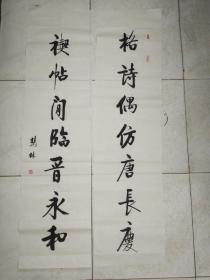 格詩偶仿唐長慶
禊帖閒臨晉永和